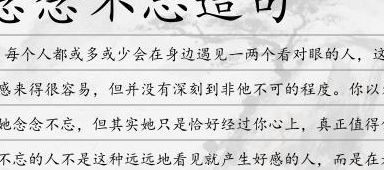 念念不忘造句
每个人都或多或少会在身边遇见一两个看对眼的人，这
感来得很容易，但并没有深刻到非他不可的程度。你以
她念念不忘，但其实她只是恰好经过你心上，真正值得
不忘的人不是这种远远地看见就产生好感的人，而是在